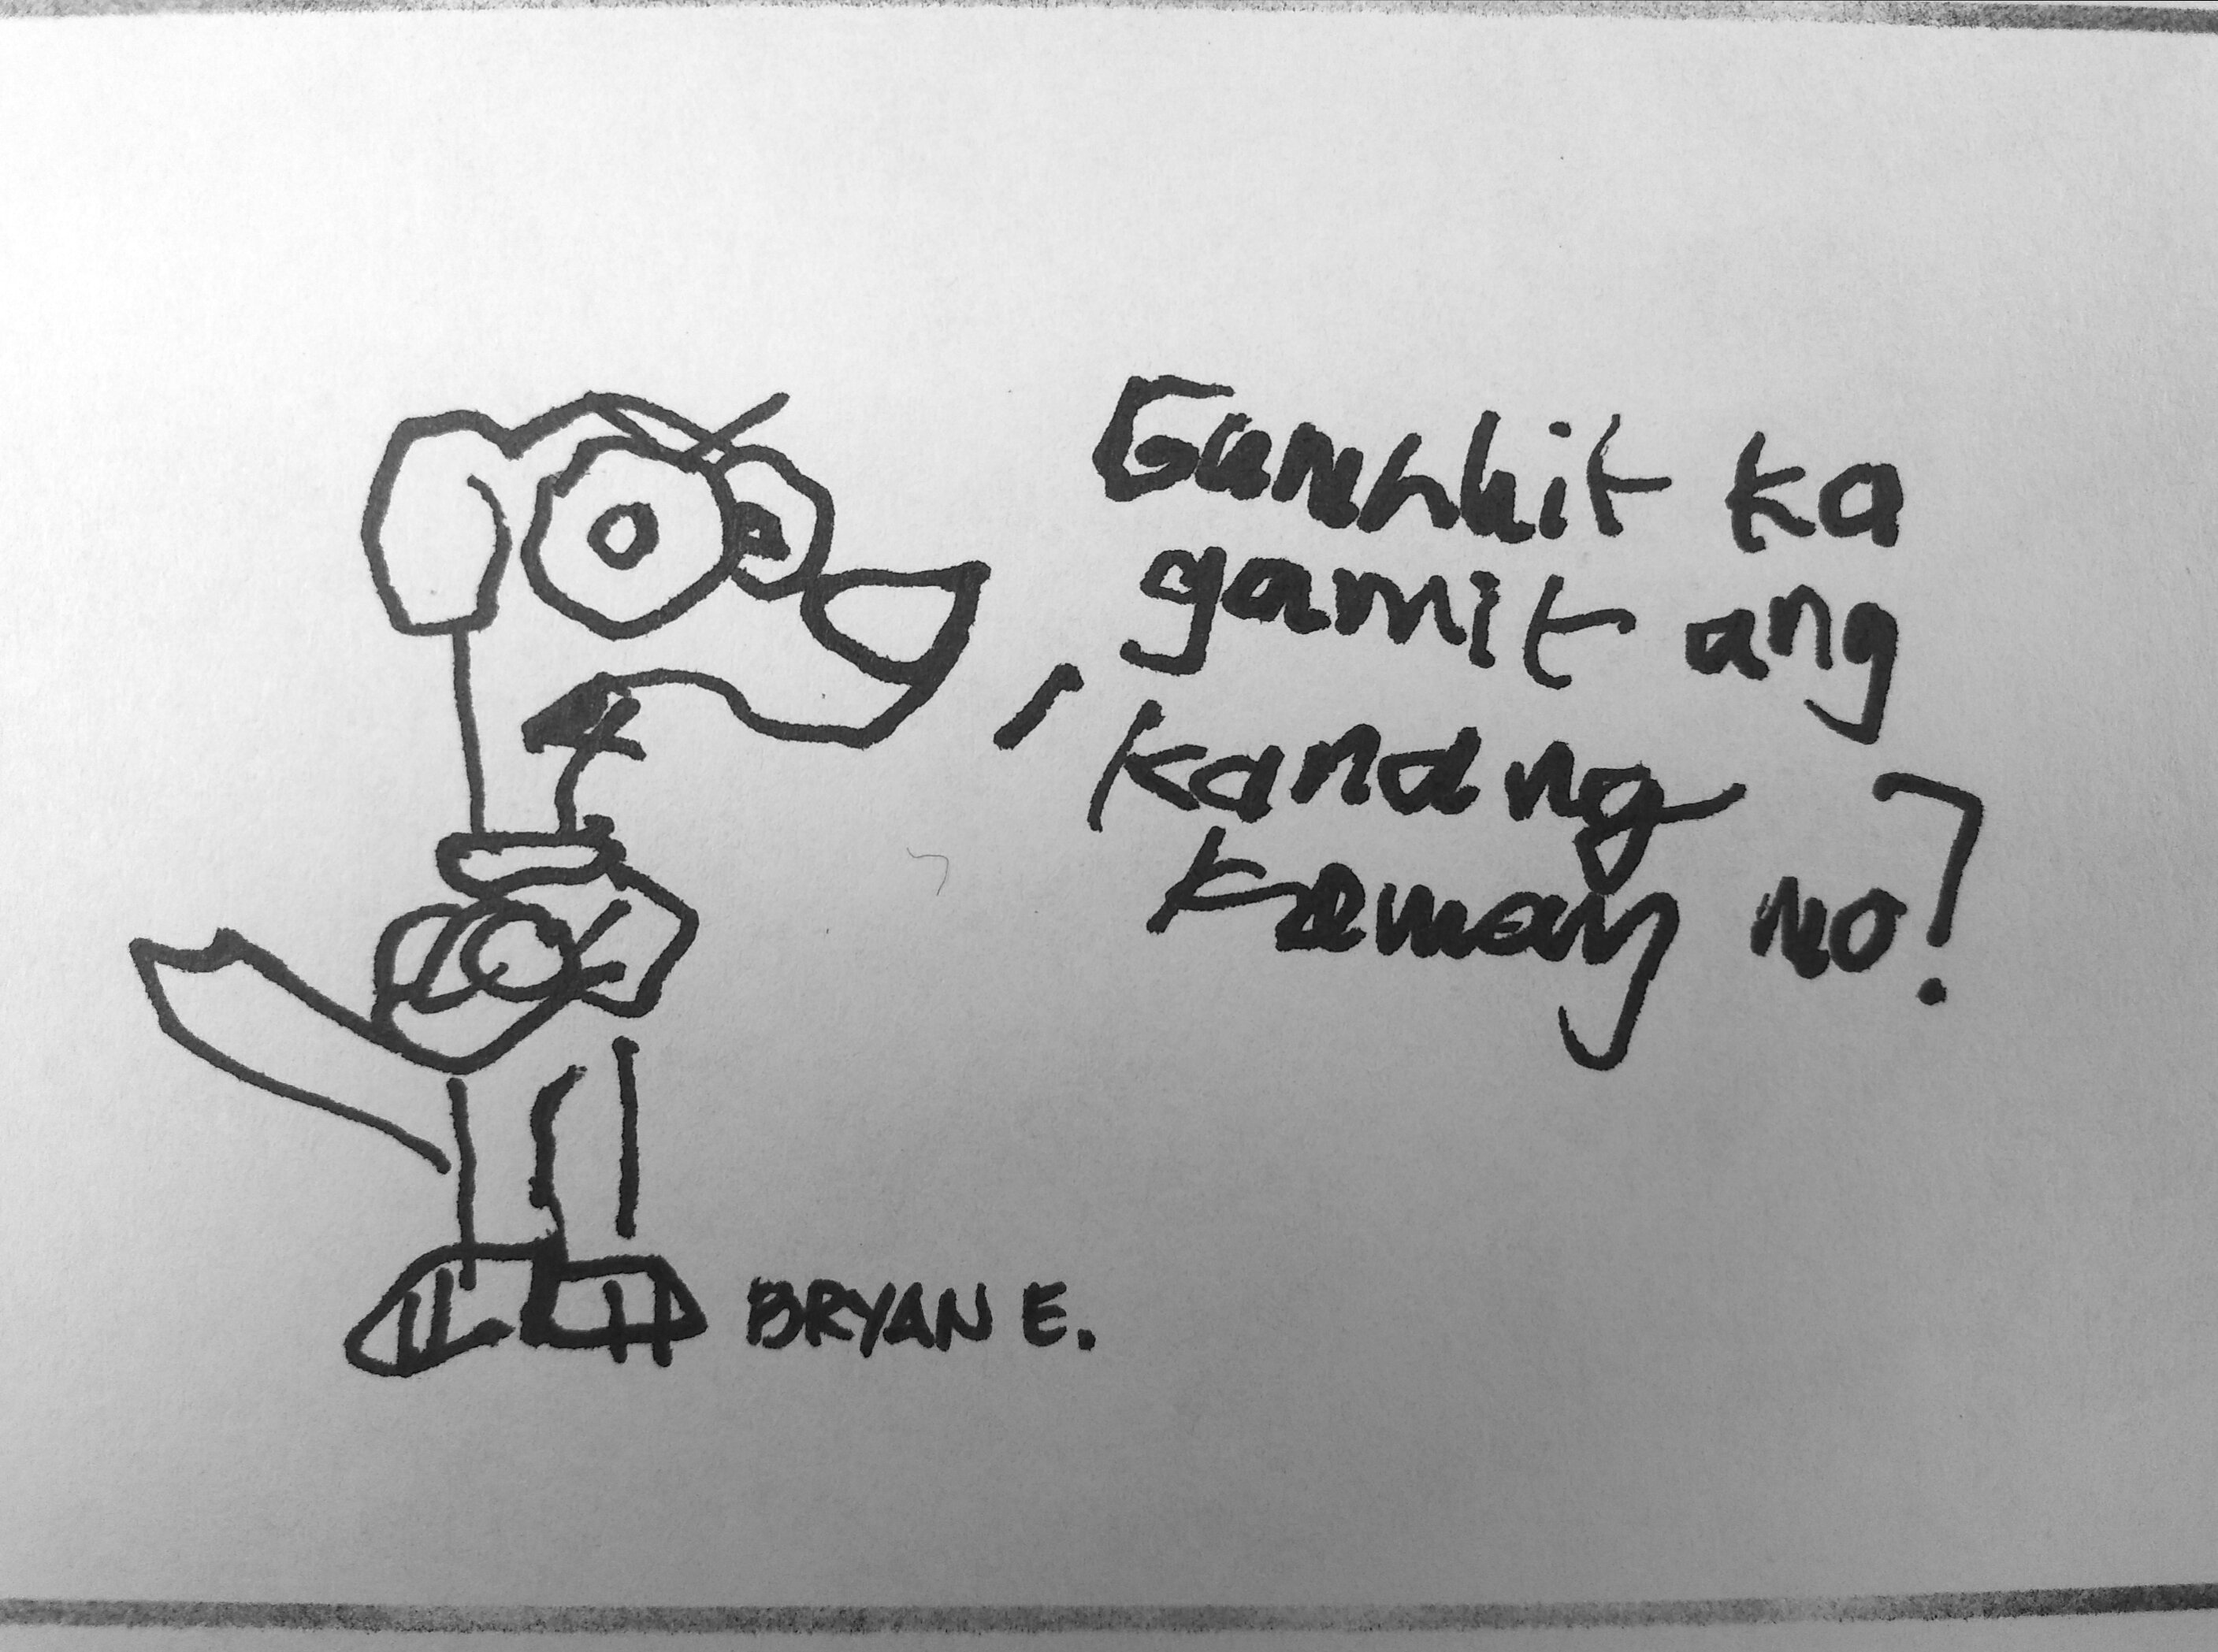 Gumuhit ka
gamit ang
kanang
kamay mo?
BRYAN E.